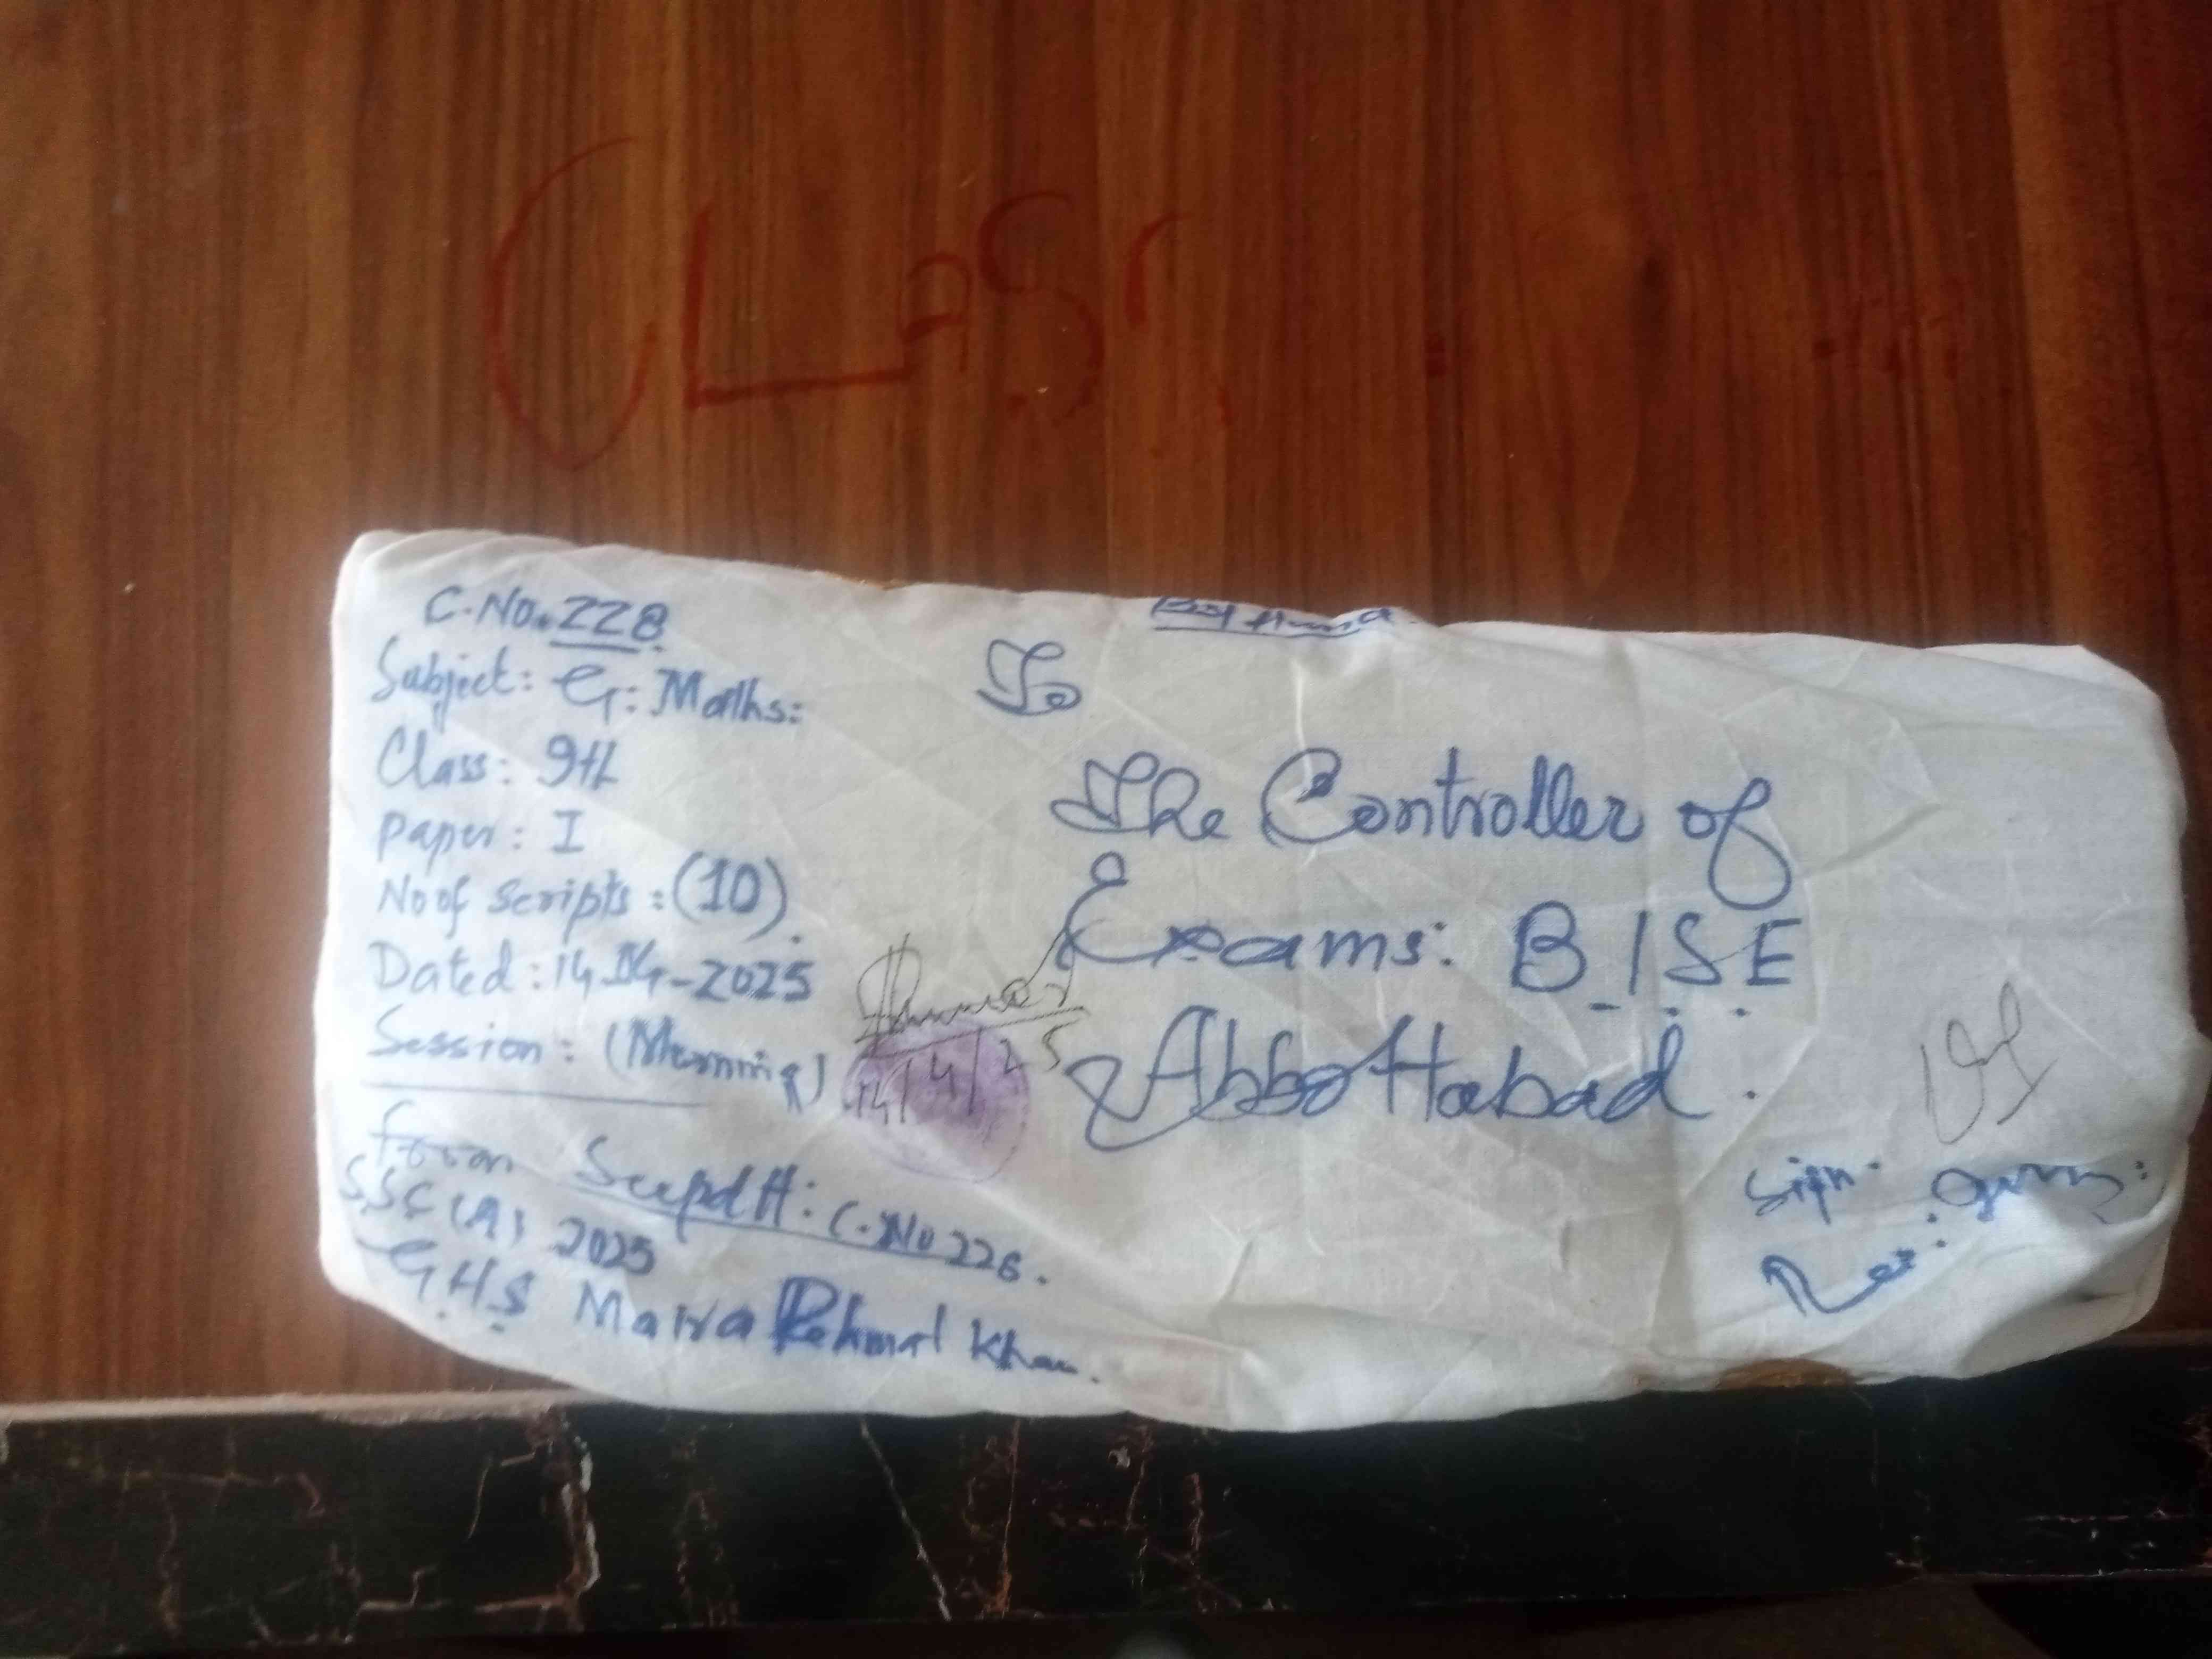 CLASS
By Hand
C.No. 228
Subject: G: Maths:
Class: 9th
Paper: I
No of Scripts: (10).
Dated: 14-04-2025
Session: (Morning)
14/4/25
To
The Controller of
Exams: B.I.S.E
Abbottabad.
From Supdtt: C.No 228.
SSC (A) 2025
G.H.S Maira Rehmat Khan.
Sign.